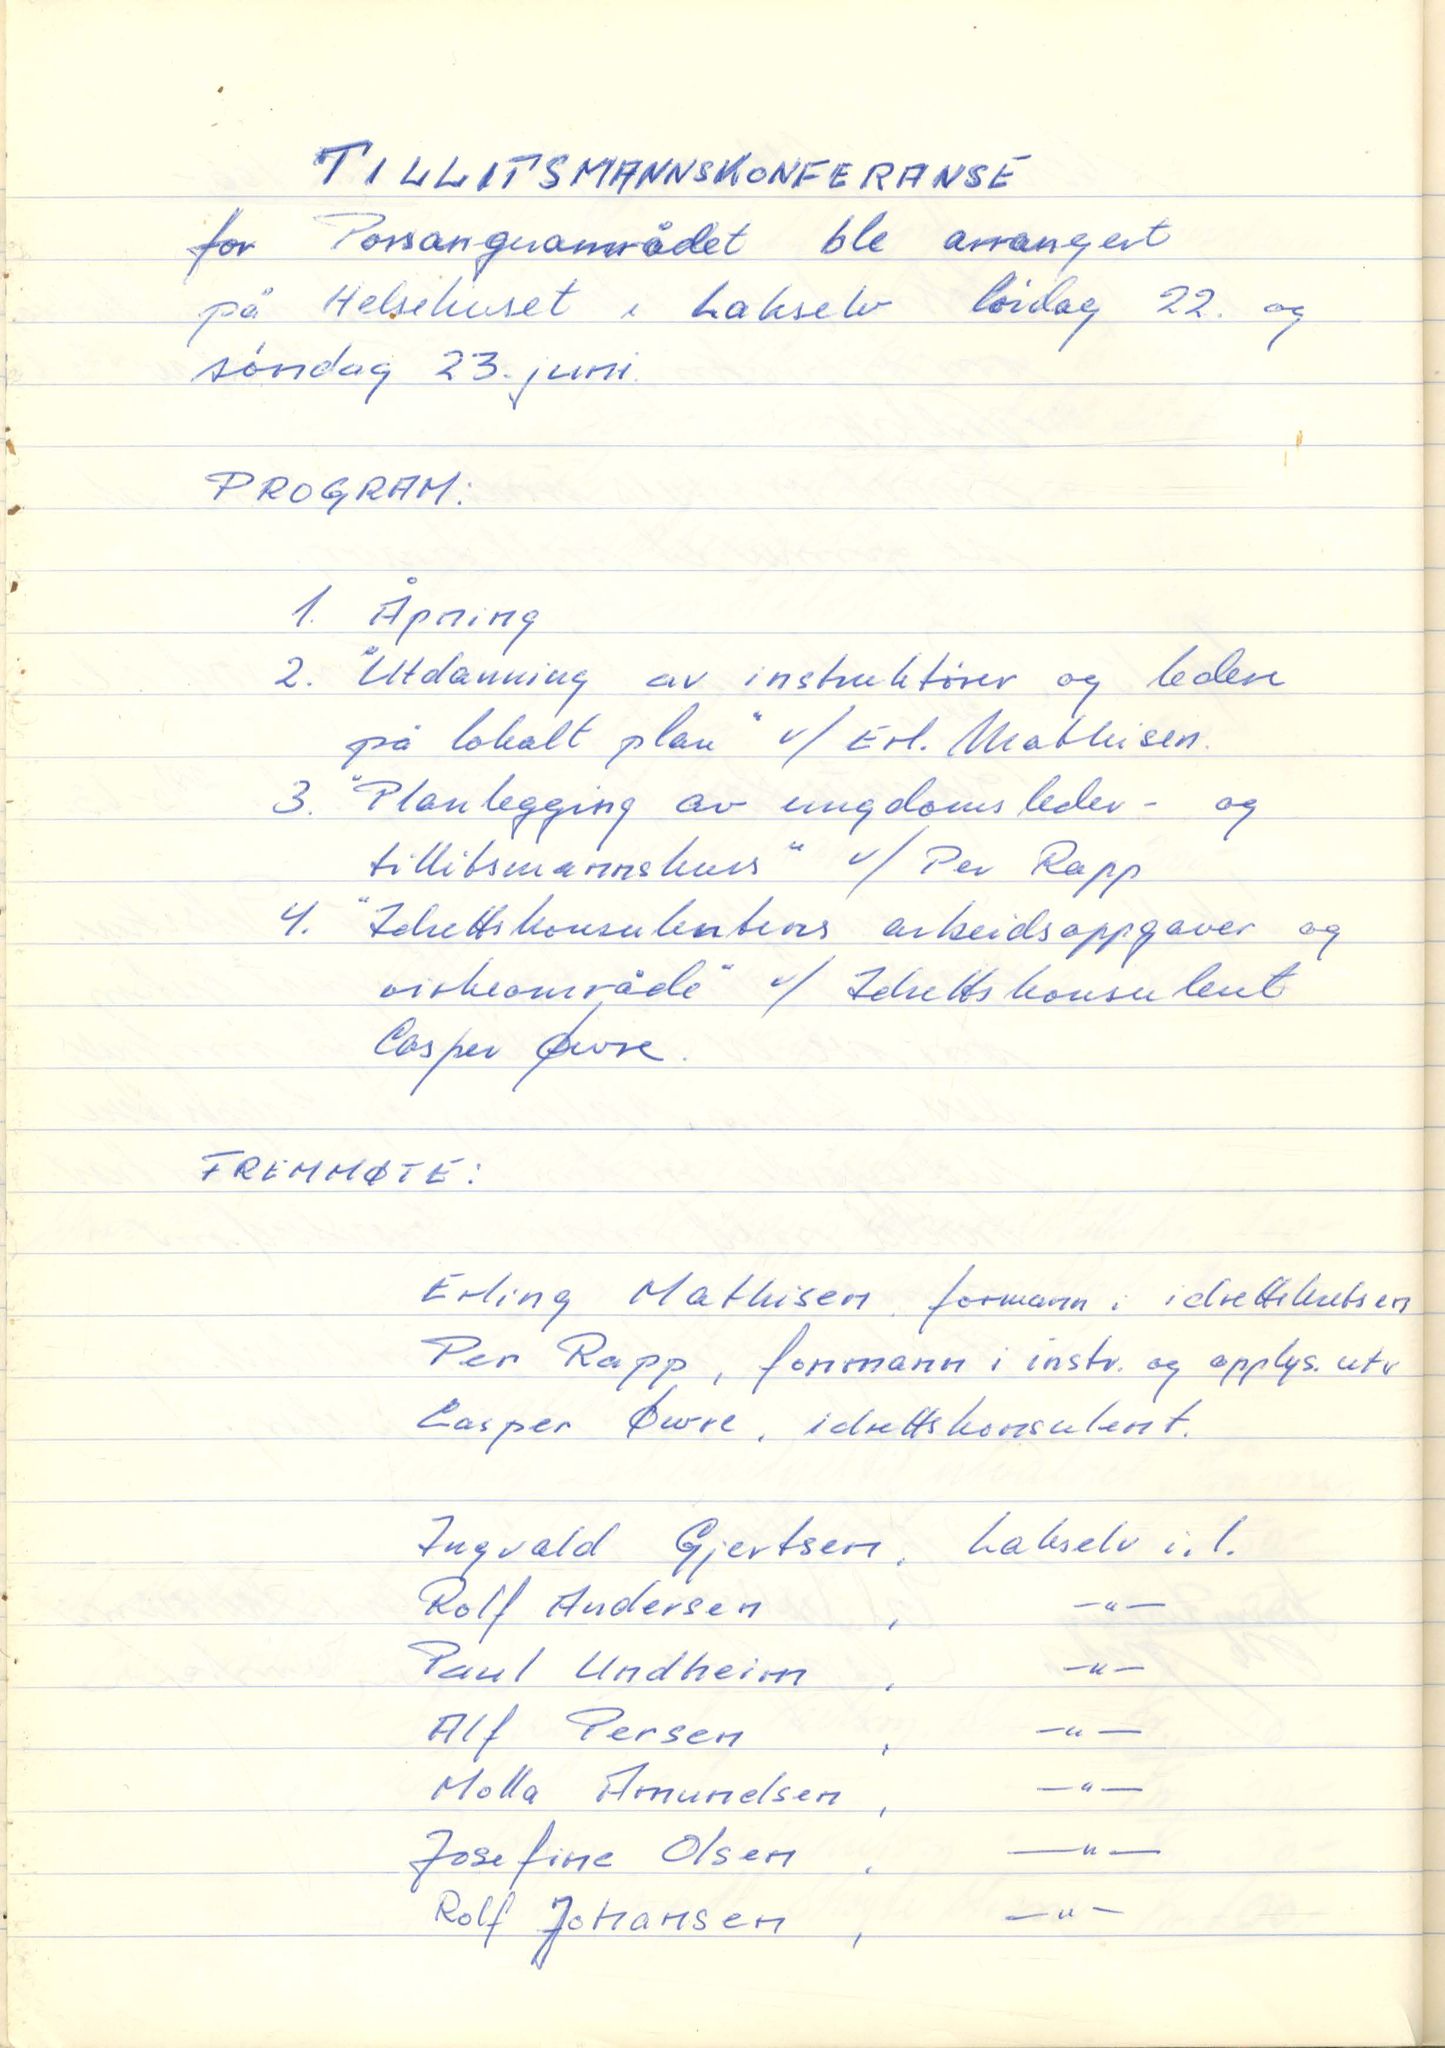 TILLITSMANNSKONFERANSE
for Porsangerområdet ble arrangert
på Helsehuset i Lakselv lördag 22. og
söndag 23. juni.
PROGRAM:
1. Åpning
2. "Utdanning av instruktører og ledere
på lokalt plan" v/ Erl. Mathisen.
3. "Planlegging av ungdomsleder- og
tillitsmannskurs" v/ Per Rapp
4. "Idrettskonsulentens arbeidsoppgaver og
virkeområde" v/ Idrettskonsulent
Casper Øwre.
FREMMØTE:
Erling Mathisen, formann i idrettskretsen
Per Rapp, formann i instr. og opplys. utv
Casper Øwre, idrettskonsulent.
Ingvald Gjertsen, Lakselv i.l.
Rolf Andersen, -"-
Paul Undheim, -"-
Alf Persen, -"-
Molla Amundsen, -"-
Josefine Olsen, -"-
Rolf Johansen, -"-